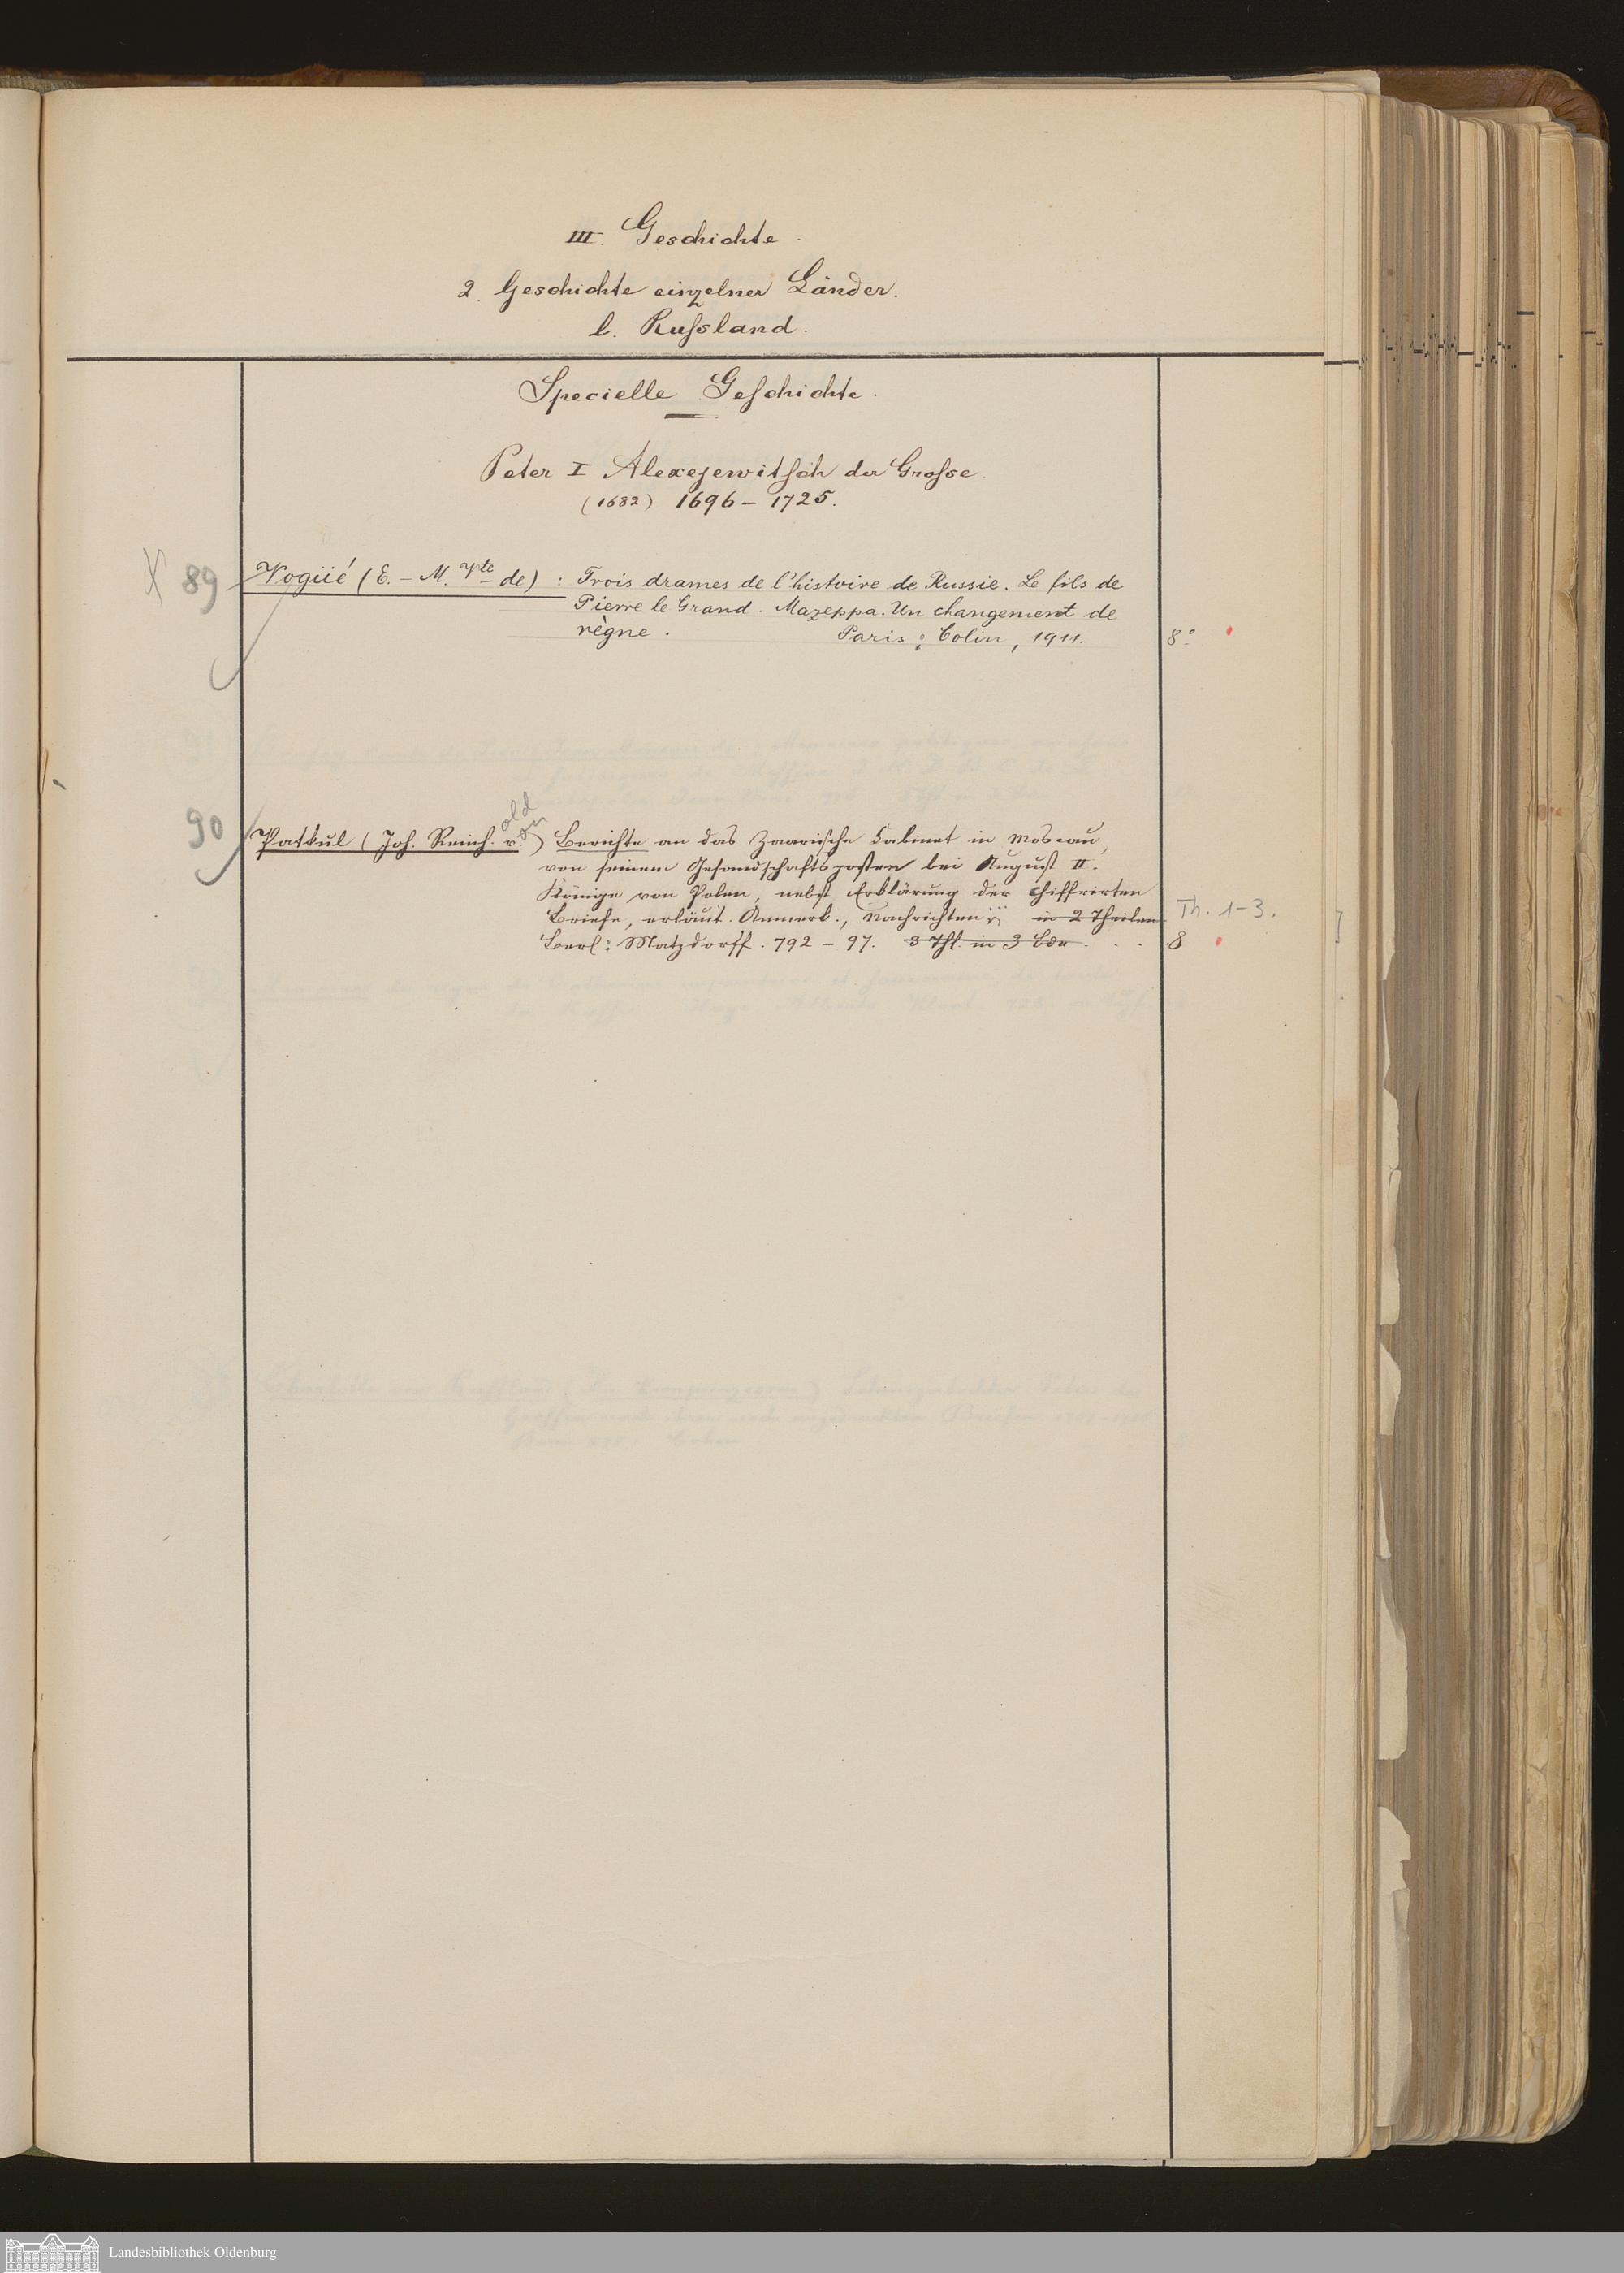 III. Geschichte.
2. Geschichte einzelner Länder.
l. Rußland.
Specielle Geschichte.
Peter I Alexejewitsch der Grosse
(1682) 1696 – 1725.
X 89 Vogüé (E. – M. Vte de) : Trois drames de l'histoire de Russie. Le fils de
Pierre le Grand. Mazeppa. Un changement de
règne. Paris : Colin, 1911. 8°
90 Patkul (Joh. Reinh. v.) Berichte an das Zaarische Cabinet in Moscau,
old
on
von seinem Gesandschaftsposten bei August II.
Könige von Polen, nebst Erklärung der chiffrirten
Briefe, erläut. Anmerk., Nachrichten in 2 Theilen Th. 1-3.
Berl: Matzdorff. 792 – 97. 3 Thl. in 3 Bde . . . 8
Landesbibliothek Oldenburg